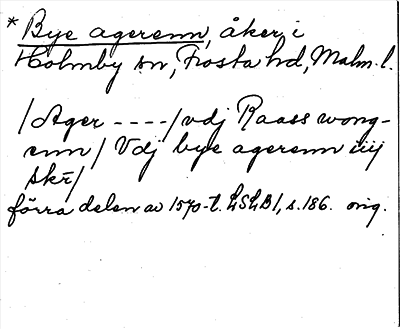 * Bye agerenn, åker, i
Holmby sn, Frosta hd, Malm. l.
/Ager ----/ vdj Raass wong-
enn/ Vdj bye agerenn iiij
skr/
förra delen av 1570-t. LSLB1, s. 186. orig.